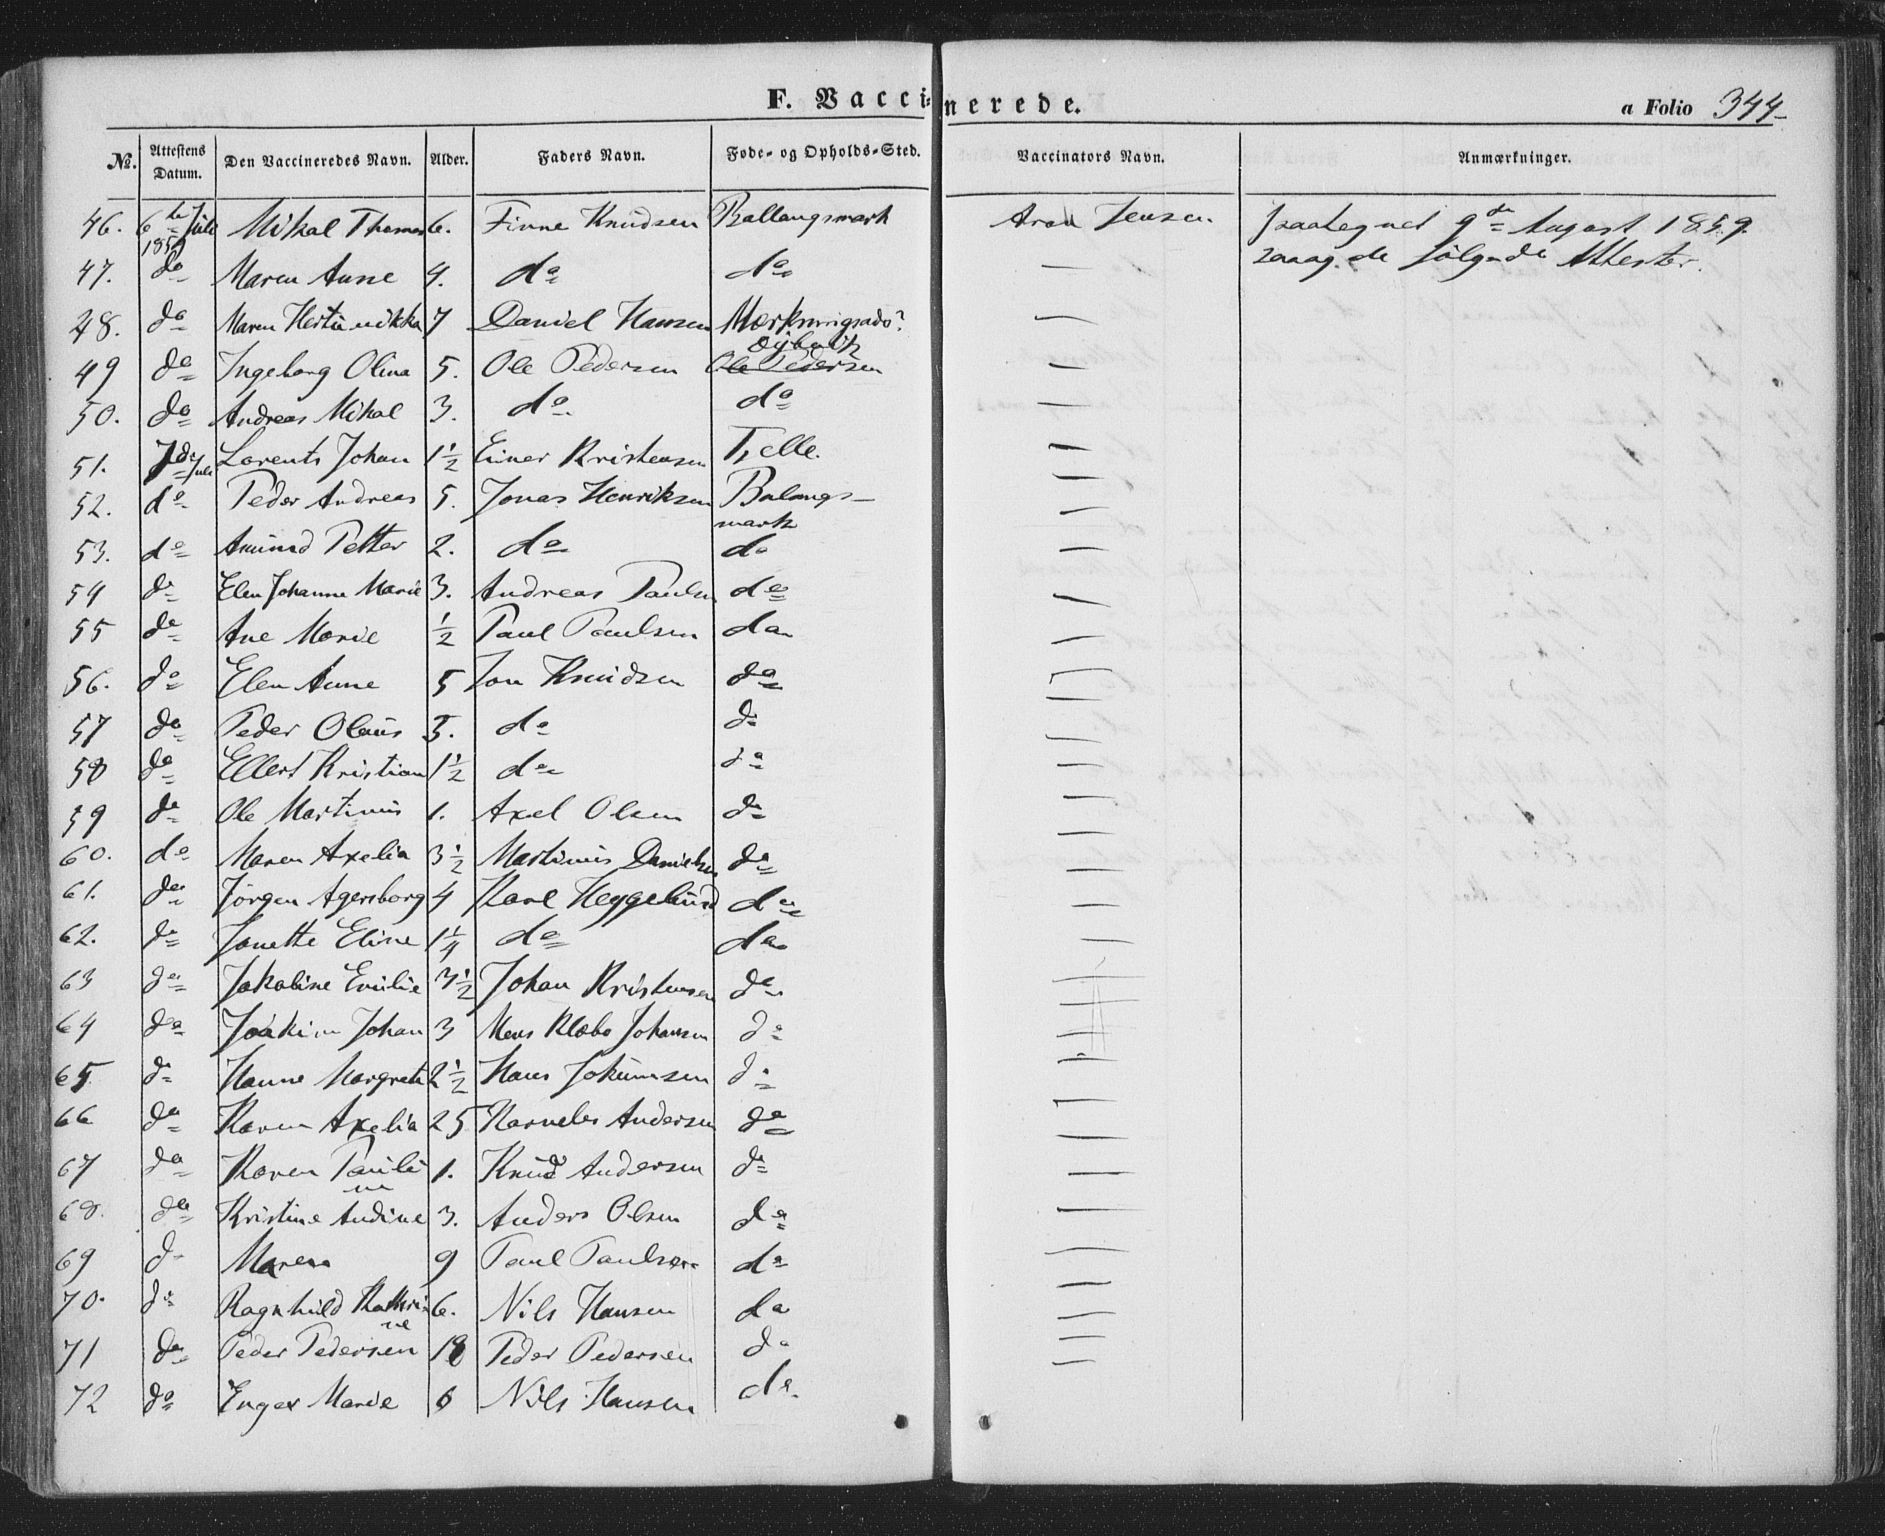 F. Vaccinerede.
a Folio 344
No. Attestens Datum. Den Vaccineredes Navn. Alder. Faders Navn. Føde- og Opholds-Sted. Vaccinators Navn. Anmærkninger.
46. 6te Juli 1859 Mikal Thomas 6. Finne Knudsen Ballangsmark Aron Jensen paategnet 9de August 1859
47. do Maren Anne 4. do do — følgende Attester.
48. do Maren 7 Daniel Hansen —
49 do Ingeborg Olina 5. Ole Pedersen Ole Pedersen —
50. do Andreas Mikal 3. do do —
51. 7de Juli Lorents Johan 1½ Einer Kristensen Tjelle. —
52. do Peder Andreas 5. Jonas Henriksen Balangs-
mark —
53. do Amund Petter 2. do do —
54 do Elen Johanne Marie 3. Andreas Paulsen do —
55 do Ane Marie ½ Paul Paulsen do —
56. do Elen Anne 5 Jon Knudsen do —
57 do Peder Olaus 3. do do —
58 do Ellert Kristian 1½ do do —
59 do Ole Martinus 1. Axel Olsen do —
60. do Maren Axelia 3½ Martinus Danielsen do —
61. do Jørgen Agersborg 4 Karl Heggelund do —
62. do Janette Eline 1¼ do do —
63 do Jakobine Emilie 3½ Johan Kristensen do —
64 do Joakim Johan 3 Mens Klæbo Johansen do —
65 do Hanne Margrete 2½ Hans Jokumsen do —
66 do Karen Axelia 25 Karneles Andersen do —
67 do Karen Pauli
ne 1. Knud Andersen do —
68. do Kristine Andine 3. Anders Olsen do —
69 do Maren 9 Paul Paulsen do —
70. do Ragnhild Kathri
ne 6. Nils Hansen do —
71 do Peder Pedersen 18 Peder Pedersen do —
72 do Inger Marie 6 Nils Hansen do —